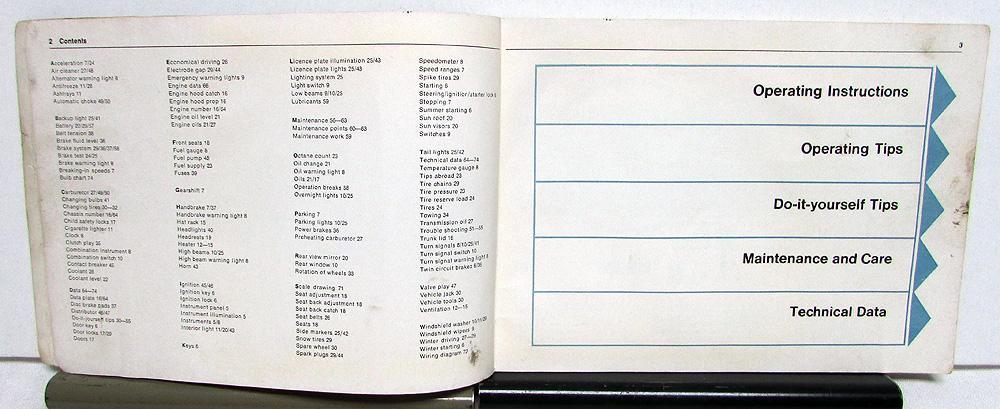 2 Contents
Acceleration 7/24
Air cleaner 27/48
Alternator warning light 8
Antifreeze 11/28
Ashtrays 11
Automatic choke 49/50
Backup light 25/41
Battery 22/29/57
Belt tension 38
Brake fluid level 36
Brake system 29/36/37/58
Brake test 24/25
Brake warning light 9
Breaking-in speeds 7
Bulb chart 74
Carburetor 27/49/50
Changing bulbs 41
Changing tires 30—32
Chassis number 16/64
Child safety locks 17
Cigarette lighter 11
Clock 8
Clutch play 35
Combination instrument 8
Combination switch 10
Contact breaker 45
Coolant 28
Coolant level 22
Data 64—74
Data plate 16/64
Disc brake pads 37
Distributor 46/47
Do-it-yourself tips 30—55
Door key 6
Door locks 17/29
Doors 17
Economical driving 26
Electrode gap 29/44
Emergency warning lights 9
Engine data 66
Engine hood catch 16
Engine hood prop 16
Engine number 16/64
Engine oil level 21
Engine oils 21/27
Front seats 18
Fuel gauge 8
Fuel pump 48
Fuel supply 23
Fuses 39
Gearshift 7
Handbrake 7/37
Handbrake warning light 8
Hat rack 15
Headlights 40
Headrests 19
Heater 12—15
High beams 10/25
High beam warning light 8
Horn 43
Ignition 45/46
Ignition key 6
Ignition lock 6
Instrument panel 5
Instrument illumination 5
Instruments 5/8
Interior light 11/20/43
Keys 6
Licence plate illumination 25/43
Licence plate lights 25/43
Lighting system 25
Light switch 9
Low beams 9/10/25
Lubricants 59
Maintenance 56—63
Maintenance points 60—63
Maintenance work 59
Octane count 23
Oil change 21
Oil warning light 8
Oils 21/17
Operation breaks 58
Overnight lights 10/25
Parking 7
Parking lights 10/25
Power brakes 36
Preheating carburetor 27
Rear view mirror 20
Rear window 10
Rotation of wheels 33
Scale drawing 71
Seat adjustment 18
Seat back adjustment 18
Seat back catch 18
Seat belts 26
Seats 18
Side markers 25/42
Snow tires 29
Spare wheel 30
Spark plugs 29/44
Speedometer 8
Speed ranges 7
Spike tires 29
Starting 6
Steering/ignition/starter lock 6
Stopping 7
Summer starting 6
Sun roof 20
Sun visors 20
Switches 9
Tail lights 25/42
Technical data 64—74
Temperature gauge 8
Tips abroad 23
Tire chains 29
Tire pressure 23
Tire reserve load 24
Tires 24
Towing 34
Transmission oil 27
Trouble shooting 51—55
Trunk lid 16
Turn signals 8/10/25/41
Turn signal switch 10
Turn signal warning light 8
Twin circuit brakes 8/36
Valve play 47
Vehicle jack 30
Vehicle tools 30
Ventilation 12—15
Windshield washer
Windshield wipers
Winter driving 27—29
Winter starting 6
Wiring diagram 72
3
Operating Instructions
Operating Tips
Do-it-yourself Tips
Maintenance and Care
Technical Data